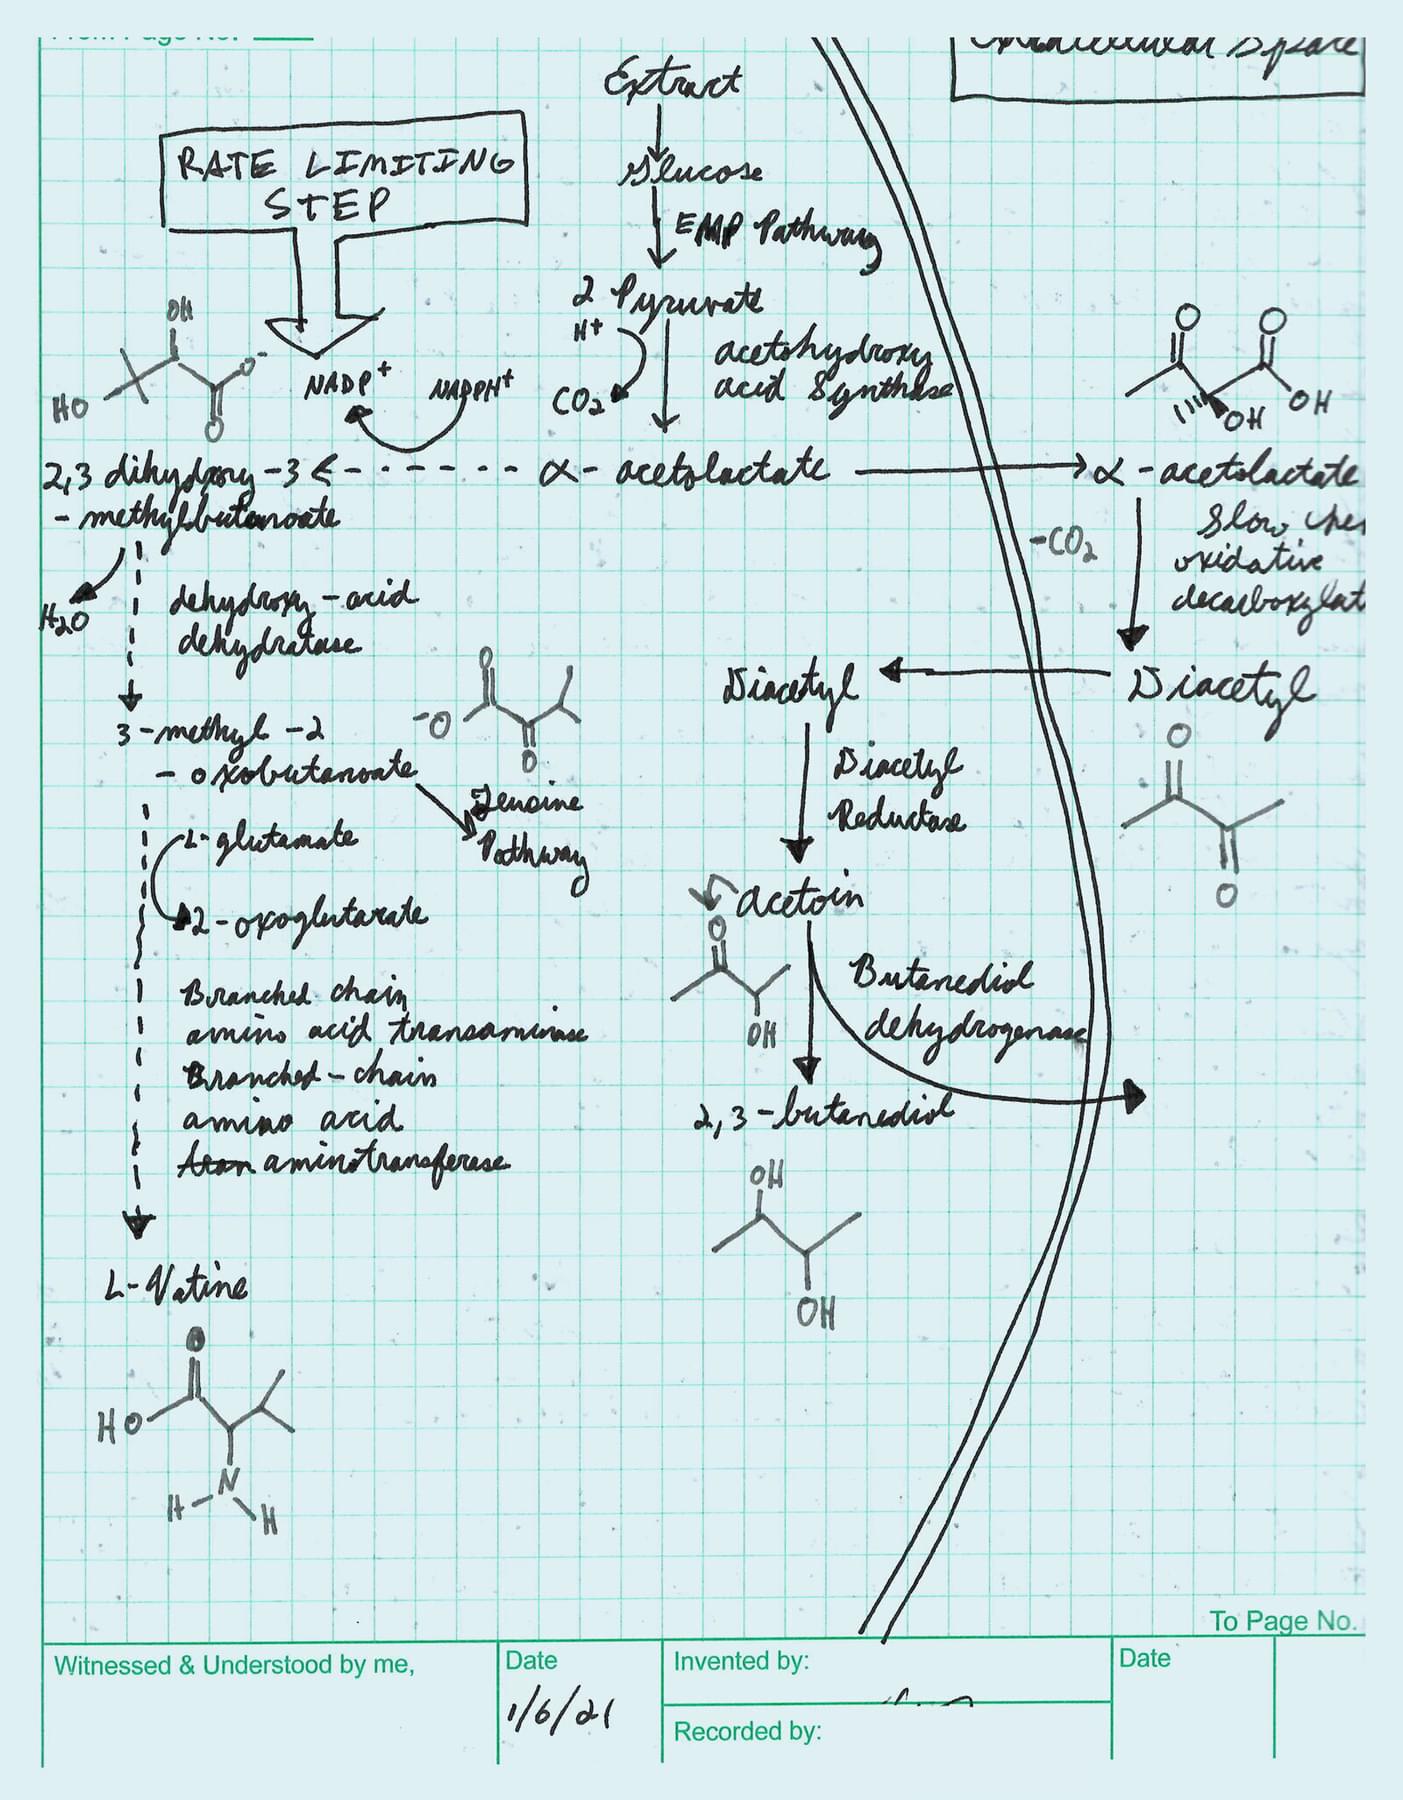 Extract
RATE LIMITING
STEP
Glucose
EMP Pathway
2 Pyruvate
H+
CO2
acetohydroxy
acid Synthase
OH
HO
O-
O
NADP+
NADPH+
O
O
OH
OH
2,3 dihydroxy-3
- methylbutanoate
α- acetolactate
α - acetolactate
Slow
oxidative
-CO2
H2O
dehydroxy-acid
dehydratase
Diacetyl
Diacetyl
O
-O
O
O
O
3-methyl-2
- oxobutanoate
Leucine
Pathway
Diacetyl
Reductase
L-glutamate
2-oxoglutarate
acetoin
O
OH
Butanediol
dehydrogenase
Branched chain
amino acid transaminase
Branched-chain
amino acid
aminotransferase
2,3-butanediol
OH
OH
L-Valine
O
HO
N
H
H
To Page No.
Witnessed & Understood by me,
Date
1/6/21
Invented by:
Recorded by:
Date